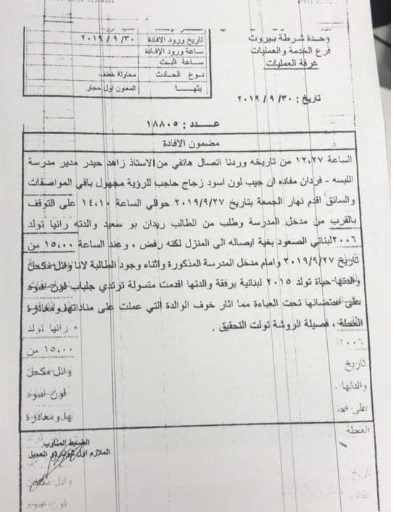 وحدة شرطة بيروت
فرع الخدمة والعمليات
غرفة العمليات
تاريخ ورود الافادة ٢٠١٩ / ٩ / ٣٠
ساعة ورود الافادة
ساعة البث
نوع الحادث محاولة خطف
بثها المعاون اول حجار
تاريخ : ٣٠ / ٩ / ٢٠١٩
عـــدد : ١٨٨٠٥
مضمون الافادة
الساعة ١٢,٢٧ من تاريخه وردنا اتصال هاتفي من الاستاذ زاهد حيدر مدير مدرسة
الليسه - فردان مفاده ان جيب لون اسود زجاج حاجب للرؤية مجهول باقي المواصفات
والسائق اقدم نهار الجمعة بتاريخ ٢٠١٩/٩/٢٧ حوالي الساعة ١٤,١٠ على التوقف
بالقرب من مدخل المدرسة وطلب من الطالب ريدان بو سعيد والدته رانيا تولد
٢٠٠٦ لبناني الصعود بغية ايصاله الى المنزل لكنه رفض ، وعند الساعة ١٥,٠٠ من
تاريخ ٢٠١٩/٩/٢٧ وامام مدخل المدرسة المذكورة واثناء وجود الطالبة لانا وائل مكحل
والدتها حياة تولد ٢٠١٥ لبنانية برفقة والدتها اقدمت متسولة ترتدي جلباب لون اسود
على احتضانها تحت العباءة مما اثار خوف الوالدة التي عملت على مناداتها ومغادرة
المحلة ، فصيلة الروشة تولت التحقيق .
رانيا تولد
٢٠٠٦
١٥,٠٠ من
تاريخ
وائل مكحل
والدتها
لون اسود
على
ومغادرة
المحلة
الضابط المناوب
الملازم اول